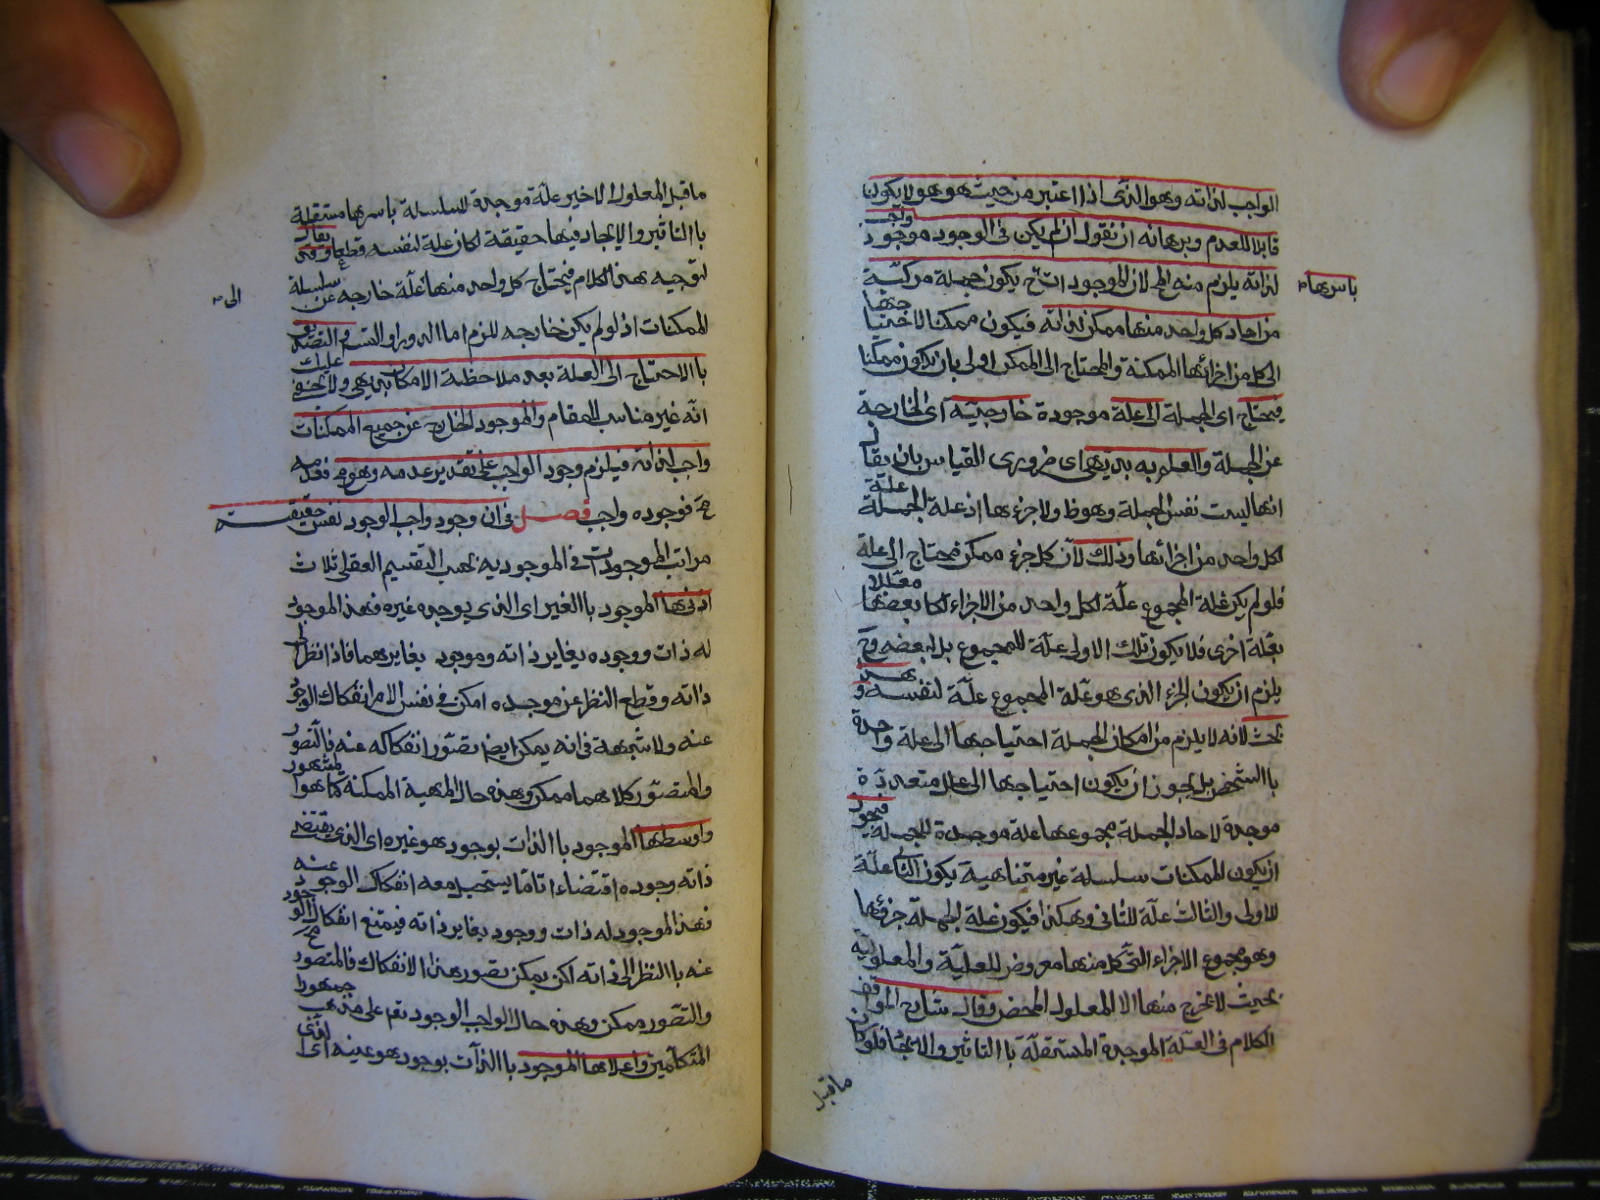 الواجب لذاته وهو الذى اذا اعتبر من حيث هو هو لا يكون
قابلا للعدم وبرهانه ان نقول ان لم يكن فى الوجود موجود واجب
لذاته يلزم منه المح لان الموجودات ح يكون جملة مركبة
باسرها
من احاد كل واحد منها ممكن لذاته فيكون ممكنا لاحتياجها
الى كل من اجزائها الممكنة والمحتاج الى الممكن اولى بان يكون ممكنا
فيحتاج اى الجملة الى علة موجودة خارجية اى الخارجة
عن الجملة والعلم به بديهى اى ضرورى القياس بان يقال
انها ليست نفس الجملة وهو ظ ولا جزءها اذ علة الجملة علة
لكل واحد من اجزائها وذلك لان كل جزء ممكن فيحتاج الى علة
فلو لم يكن علة المجموع علة لكل واحد من الاجزاء لكا بعضها معللا
بعلة اخرى فلا يكون تلك الاولى علة للمجموع بل لبعضه وح
يلزم ان يكون الجزء الذى هو علة المجموع علة لنفسه و
بحث لانه لا يلزم من امكان الجملة احتياجها الى علة واحدة
با الشخص بل يجوز ان يكون احتياجها الى علل متعددة
موجدة لاحاد الجملة مجموعها علة موجدة للجملة فيجوز
ان يكون الممكنات سلسلة غير متناهية يكون الثانى علة
للاولى والثالث علة للثانى وهكذا فيكون علة الجملة جزءها
وهو مجموع الاجزاء التى كل منها معروض للعلية والمعلولية
بحيث لا يخرج منها الا المعلول المحض وقال شارح المواقف
الكلام فى العلة الموجدة المستقلة با التاثير والايجاد فلو كان
ما قبل
ما قبل المعلول الاخير علة موجدة للسلسلة باسرها مستقلة
با التاثير والايجاد فيها حقيقة لكان علة لنفسه قطعا وقد يقال
لتوجيه هذا الكلام فيحتاج كل واحد منها علة خارجه عن سلسلة
الى
الممكنات اذ لو لم يكن خارجه للزم اما الدور او التسم والتصديق
با الاحتياج الى العلة بعد ملاحظة الامكان بديهى ولا يخفى عليك
انه غير مناسب للمقام والموجود الخارج عن جميع الممكنات
واجب لذاته فيلزم وجود الواجب على تقدير عدمه وهو مح فعدمه
مح فوجوده واجب فصل فى ان وجود واجب الوجود نفس حقيقته
مراتب الموجودات فى الموجوديه بحسب التقسيم العقلى ثلاث
ادنيها الموجود با الغير اى الذى يوجده غيره فهذا الموجود
له ذات ووجوده يغاير ذاته وموجود يغايرهما فاذا نظر الى
ذاته وقطع النظر عن موجده امكن فى نفس الامر انفكاك الوجود
عنه ولا شبهة فى انه يمكن ايضا تصور انفكاكه عنه فالتصور
والمتصور كلاهما ممكن وهذه حال المهية الممكنه كما هو المشهور
واوسطها الموجود با الذات بوجود هو غيره اى الذى يقتضى
ذاته وجوده اقتضاء تاما يستحيل معه انفكاك الوجود عنه
فهذا الموجود له ذات ووجود يغاير ذاته فيمتنع انفكاك الوجود
عنه با النظر الى ذاته لكن يمكن تصور هذا الانفكاك فالمتصور مح
والتصور ممكن وهذه حال الواجب الوجود تع على مذهب جمهور
المتكلمين واعلاها الموجود با الذات بوجود هو عينه اى الذى